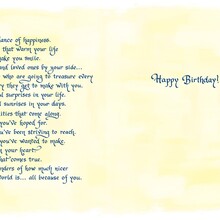 dance of happiness.
that warm your life
ake you smile.
and loved ones by your side...
who are going to treasure every
y they get to make with you.
l surprises in your life.
l sunrises in your days.
nities that come along.
you've hoped for.
you've been striving to reach.
you've wanted to make.
n your heart.
hat comes true.
nders of how much nicer
orld is... all because of you.
Happy Birthday!